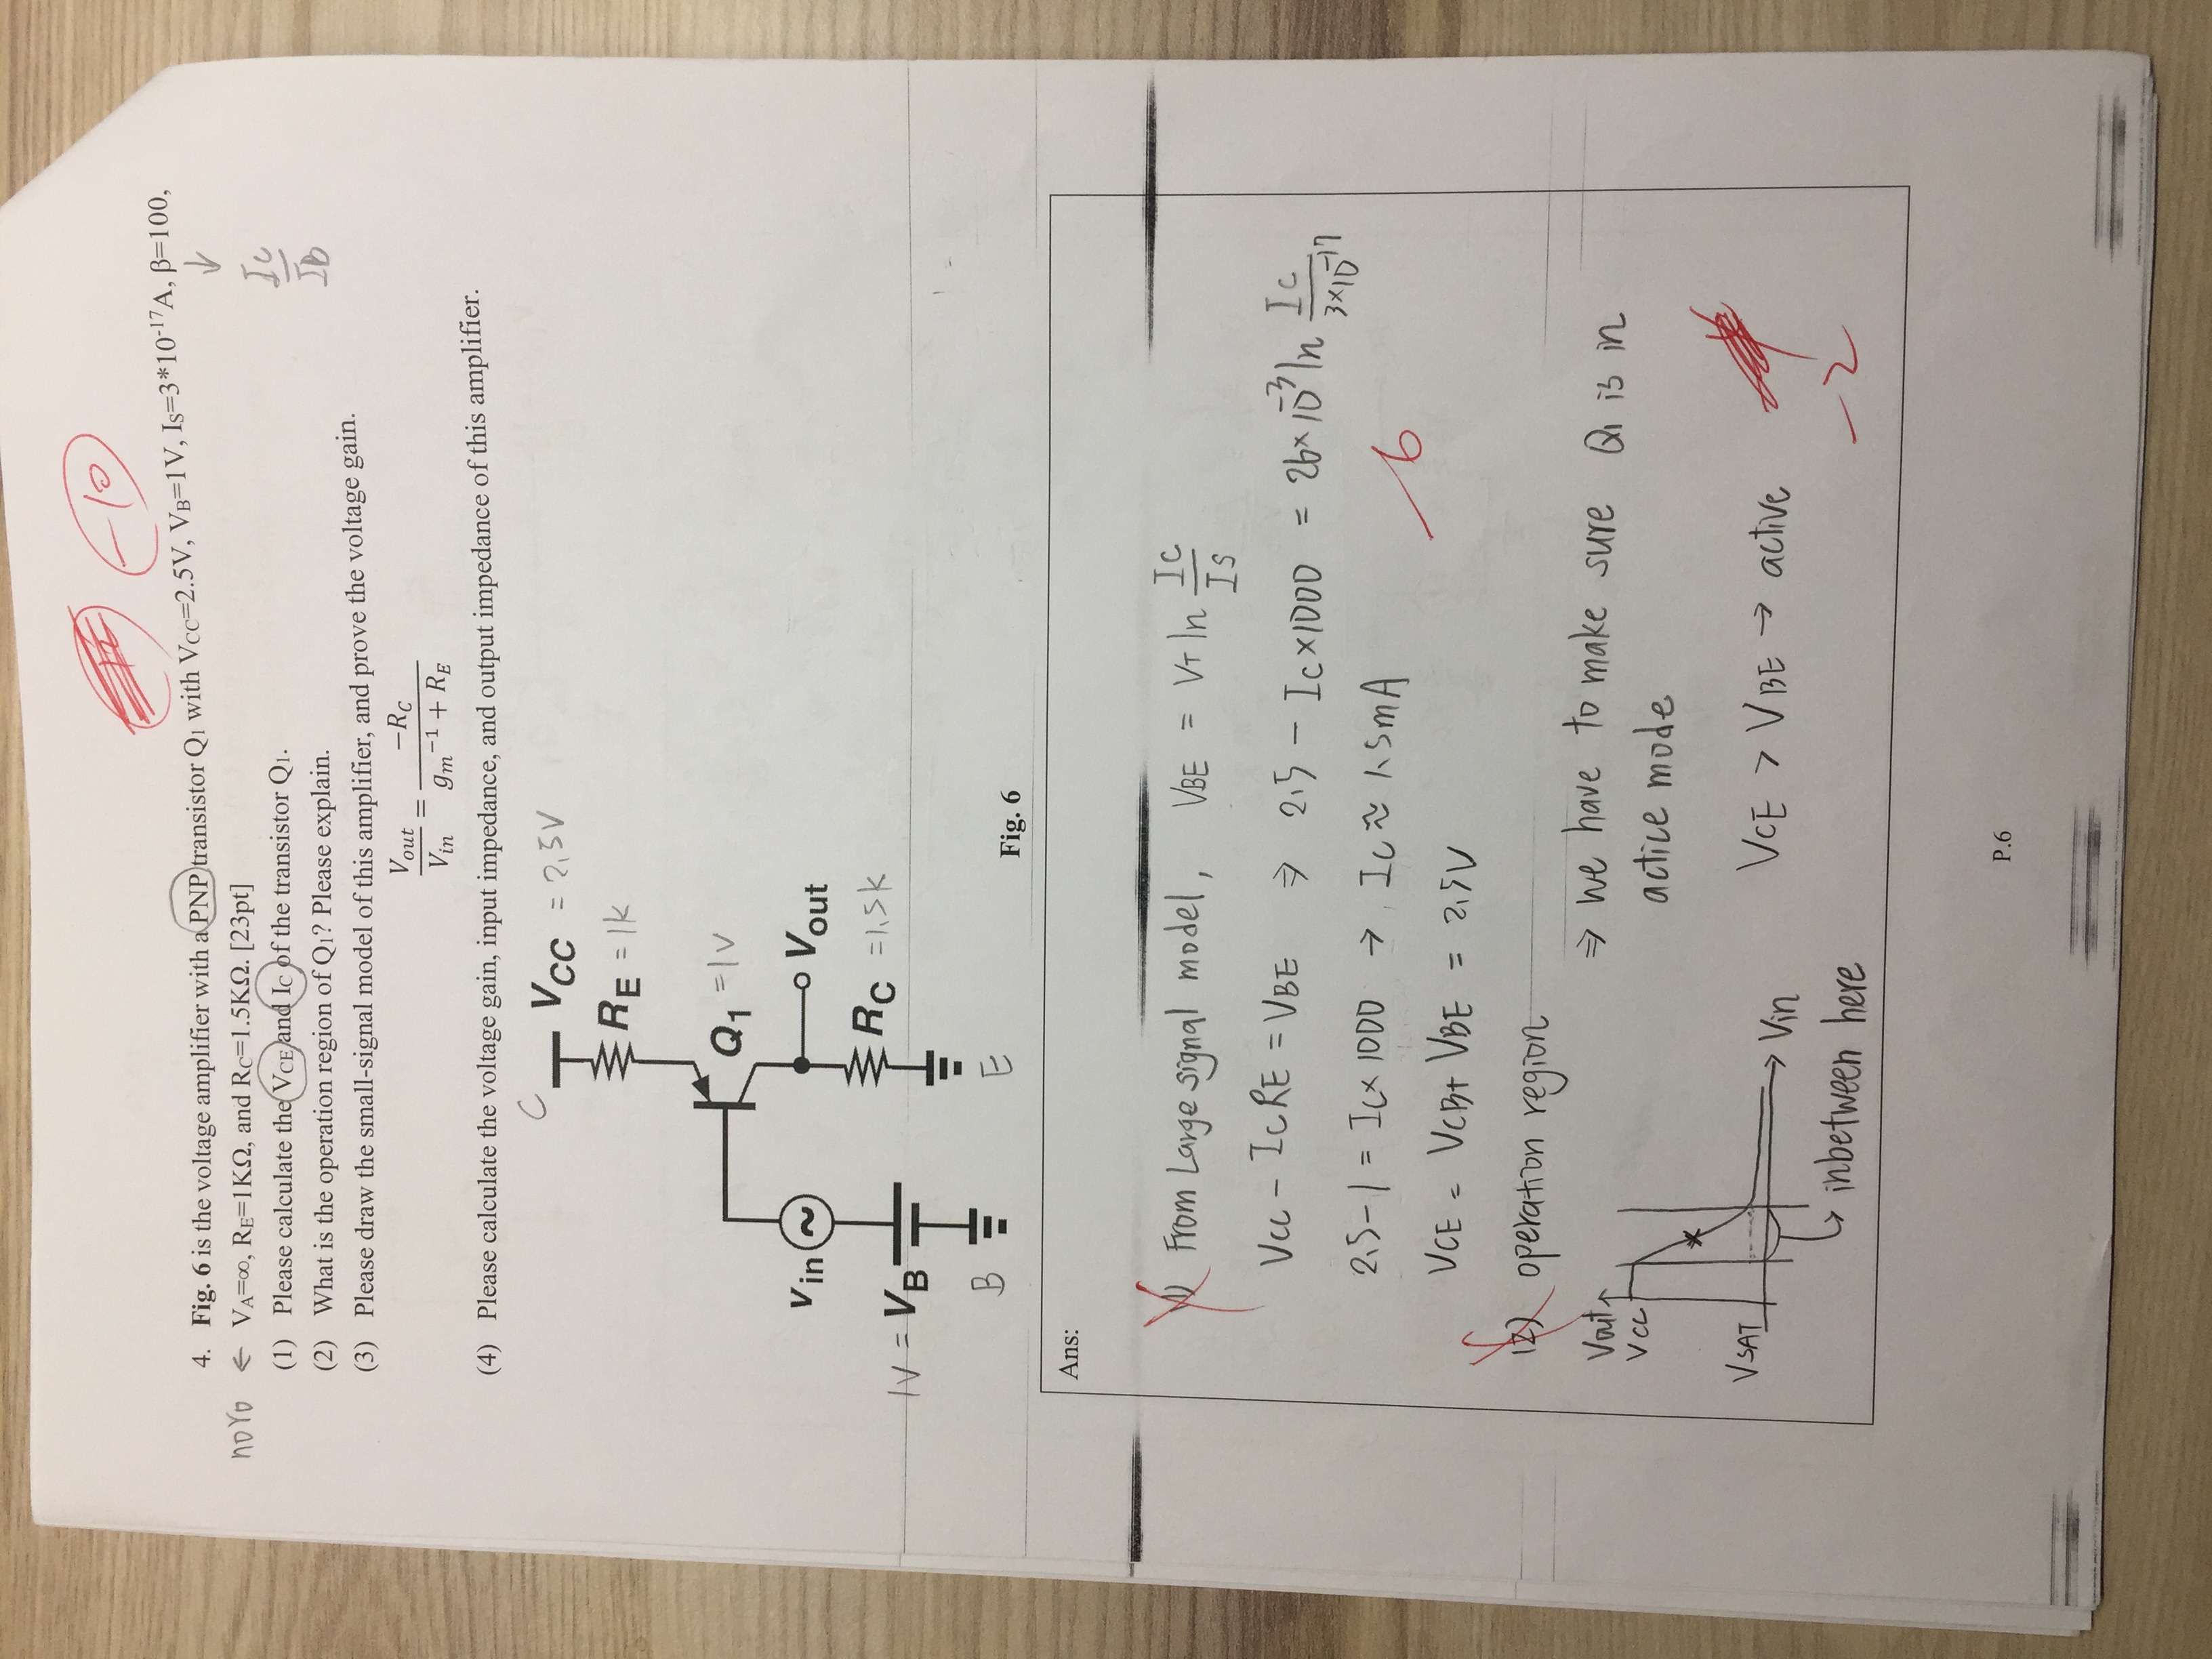 -10
4. Fig. 6 is the voltage amplifier with a PNP transistor Q1 with VCC=2.5V, VB=1V, IS=3*10-17A, β=100,
noro ← VA=∞, RE=1KΩ, and RC=1.5KΩ. [23pt]
↓
IC
IB
(1) Please calculate the VCE and IC of the transistor Q1.
(2) What is the operation region of Q1? Please explain.
(3) Please draw the small-signal model of this amplifier, and prove the voltage gain.
Vout/Vin = -RC/(gm-1 + RE)
(4) Please calculate the voltage gain, input impedance, and output impedance of this amplifier.
C
VCC = 2.5V
RE = 1k
Q1 = 1V
vin
Vout
RC = 1.5k
1V = VB
B
E
Fig. 6
Ans:
1) From Large signal model, VBE = VT ln IC/IS
VCC - ICRE = VBE ⇒ 2.5 - IC×1000 = 26×10-3 ln IC/3×10-17
2.5-1 = IC×1000 → IC ≈ 1.5mA
-6
VCE = VCB+ VBE = 2.5V
(2) operation region
⇒ we have to make sure Q1 is in
actice mode
Vout
VCC
VSAT
Vin
VCE > VBE → active
-2
inbetween here
P.6